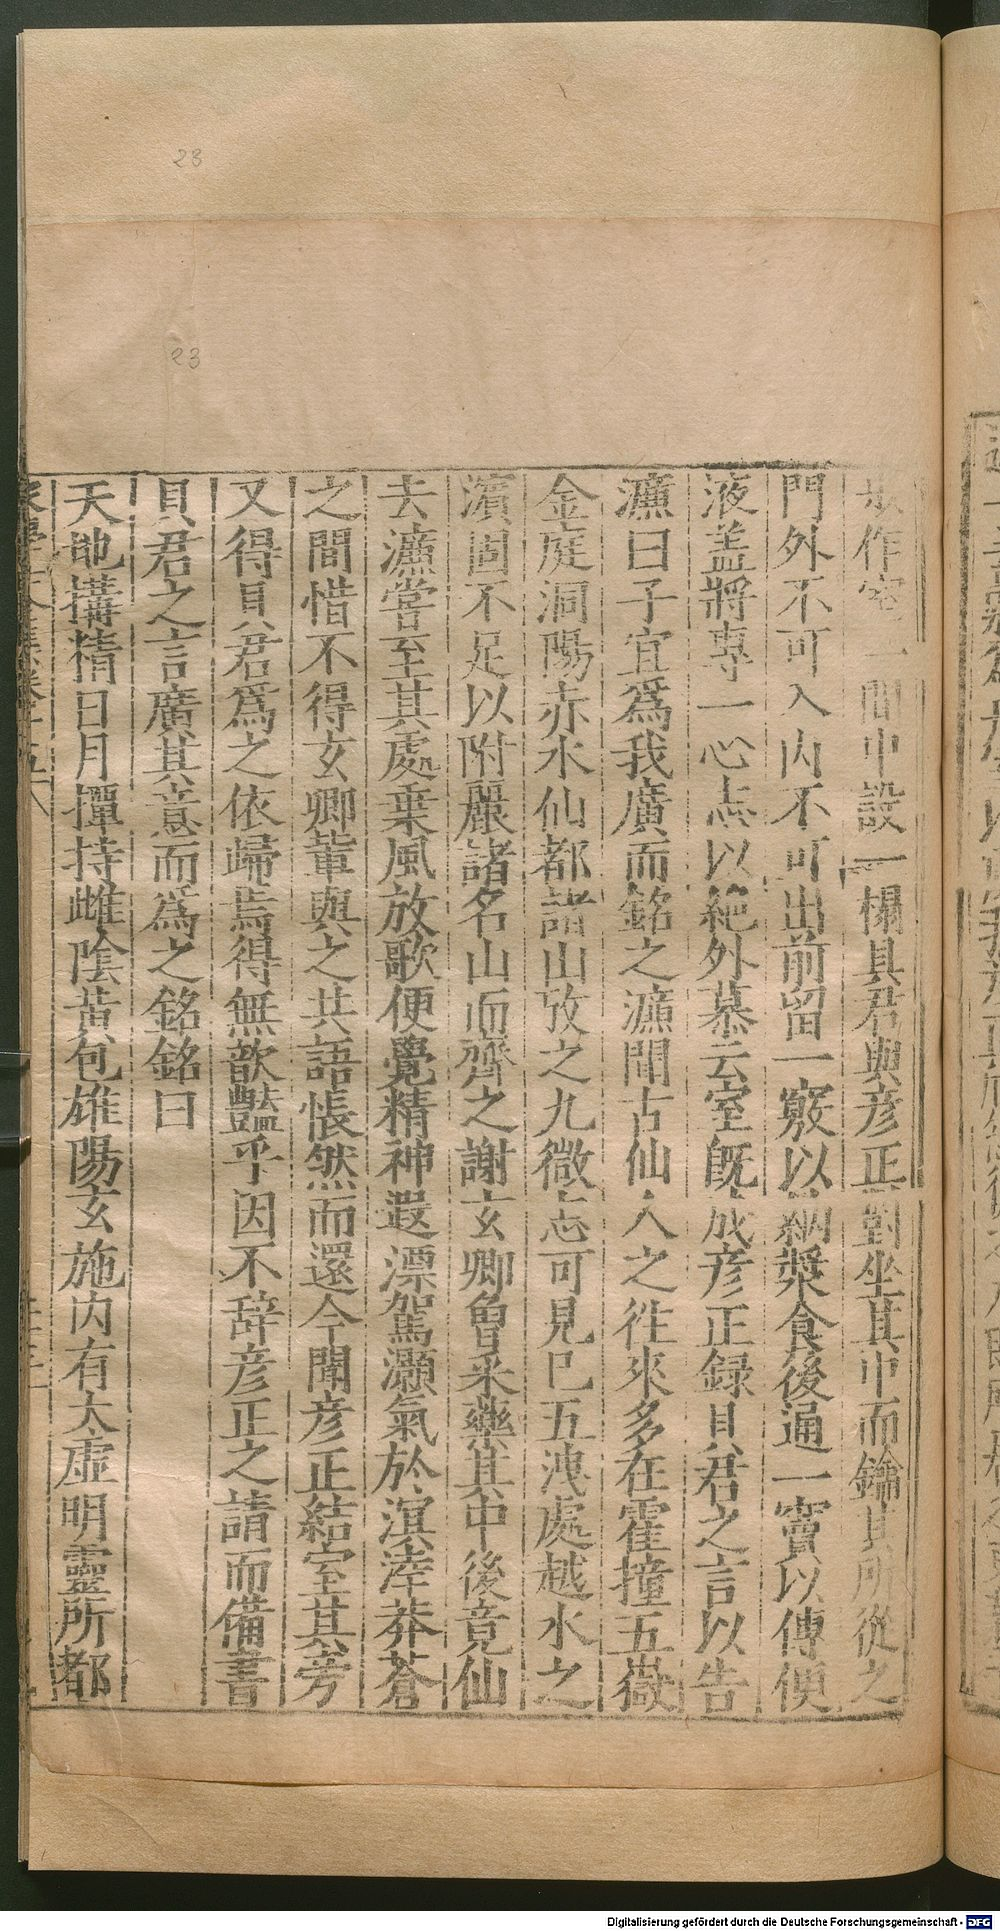 作室一間中設一榻貝君與彦正對坐其中而鑰其所從之
門外不可入内不可出前留一竅以納漿食後通一竇以傳便
液盖將專一心志以絶外慕云室既成彦正録貝君之言以告
濂曰子宜爲我廣而銘之濂聞古仙人之徃來多在霍撞五嶽
金庭洞陽赤水仙都諸山攷之九微志可見已五洩處越水之
濱固不足以附麗諸名山而齊之謝玄卿曽采藥其中後竟仙
去濂甞至其處乗風放歌便覺精神遐漂駕灝氣於溟涬莽蒼
之間惜不得玄卿輩與之共語悵然而還今聞彦正結室其旁
又得貝君爲之依歸焉得無歆豔乎因不辞彦正之請而備書
貝君之言廣其意而爲之銘銘曰
天地搆精日月撣持雌陰黄包雄陽玄施内有太虛明靈所都
23
23
Digitalisierung gefördert durch die Deutsche Forschungsgemeinschaft - DFG